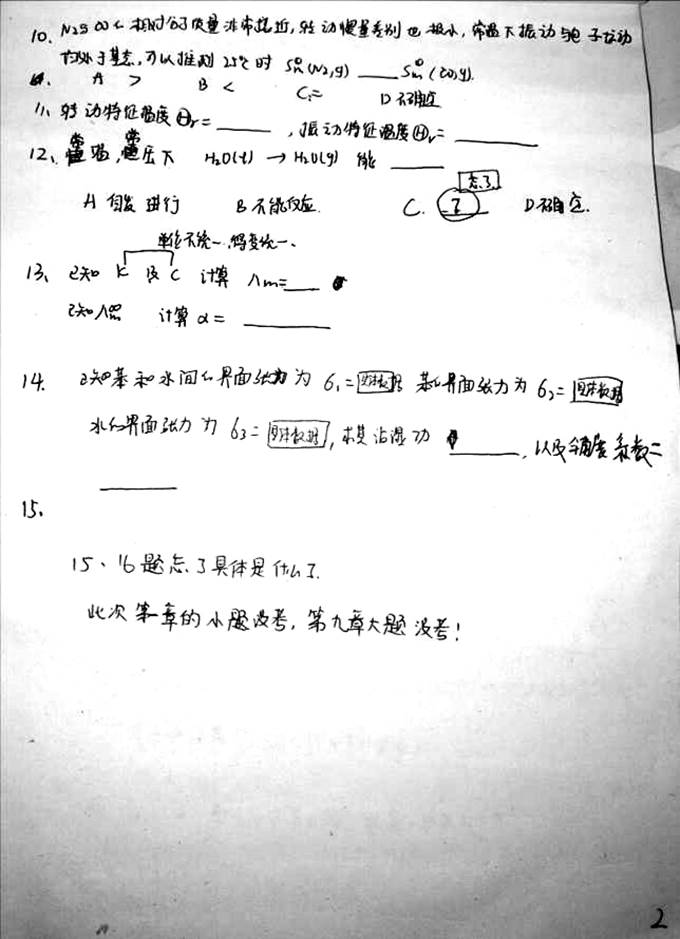 10、N2与CO的相对分子质量非常接近,转动惯量差别也极小,常温下振动与电子运动
均处于基态,可以推测25℃时 Sm⁰(N2,g) ____ Sm⁰(CO,g).
A > B < C = D 不确定
11、转动特征温度Θr= ____ ,振动特征温度Θv= ____
12、常温,常压下 H2O(l) → H2O(g) 能 ____
忘了
A 自发进行 B 不能反应. C. ? D 不确定.
单位不统一,得变统一、
13、已知 K 及 C 计算 Λm= ____
已知Λm∞ 计算 α = ____
14、已知苯和水间的界面张力为 б1=具体数据 苯的界面张力为 б2=具体数据
水的界面张力为 б3=具体数据,求其沾湿功 ____ ,以及铺展系数=
____
15、
15、16题忘了具体是什么了.
此次第一章的小题没考,第九章大题没考!
2